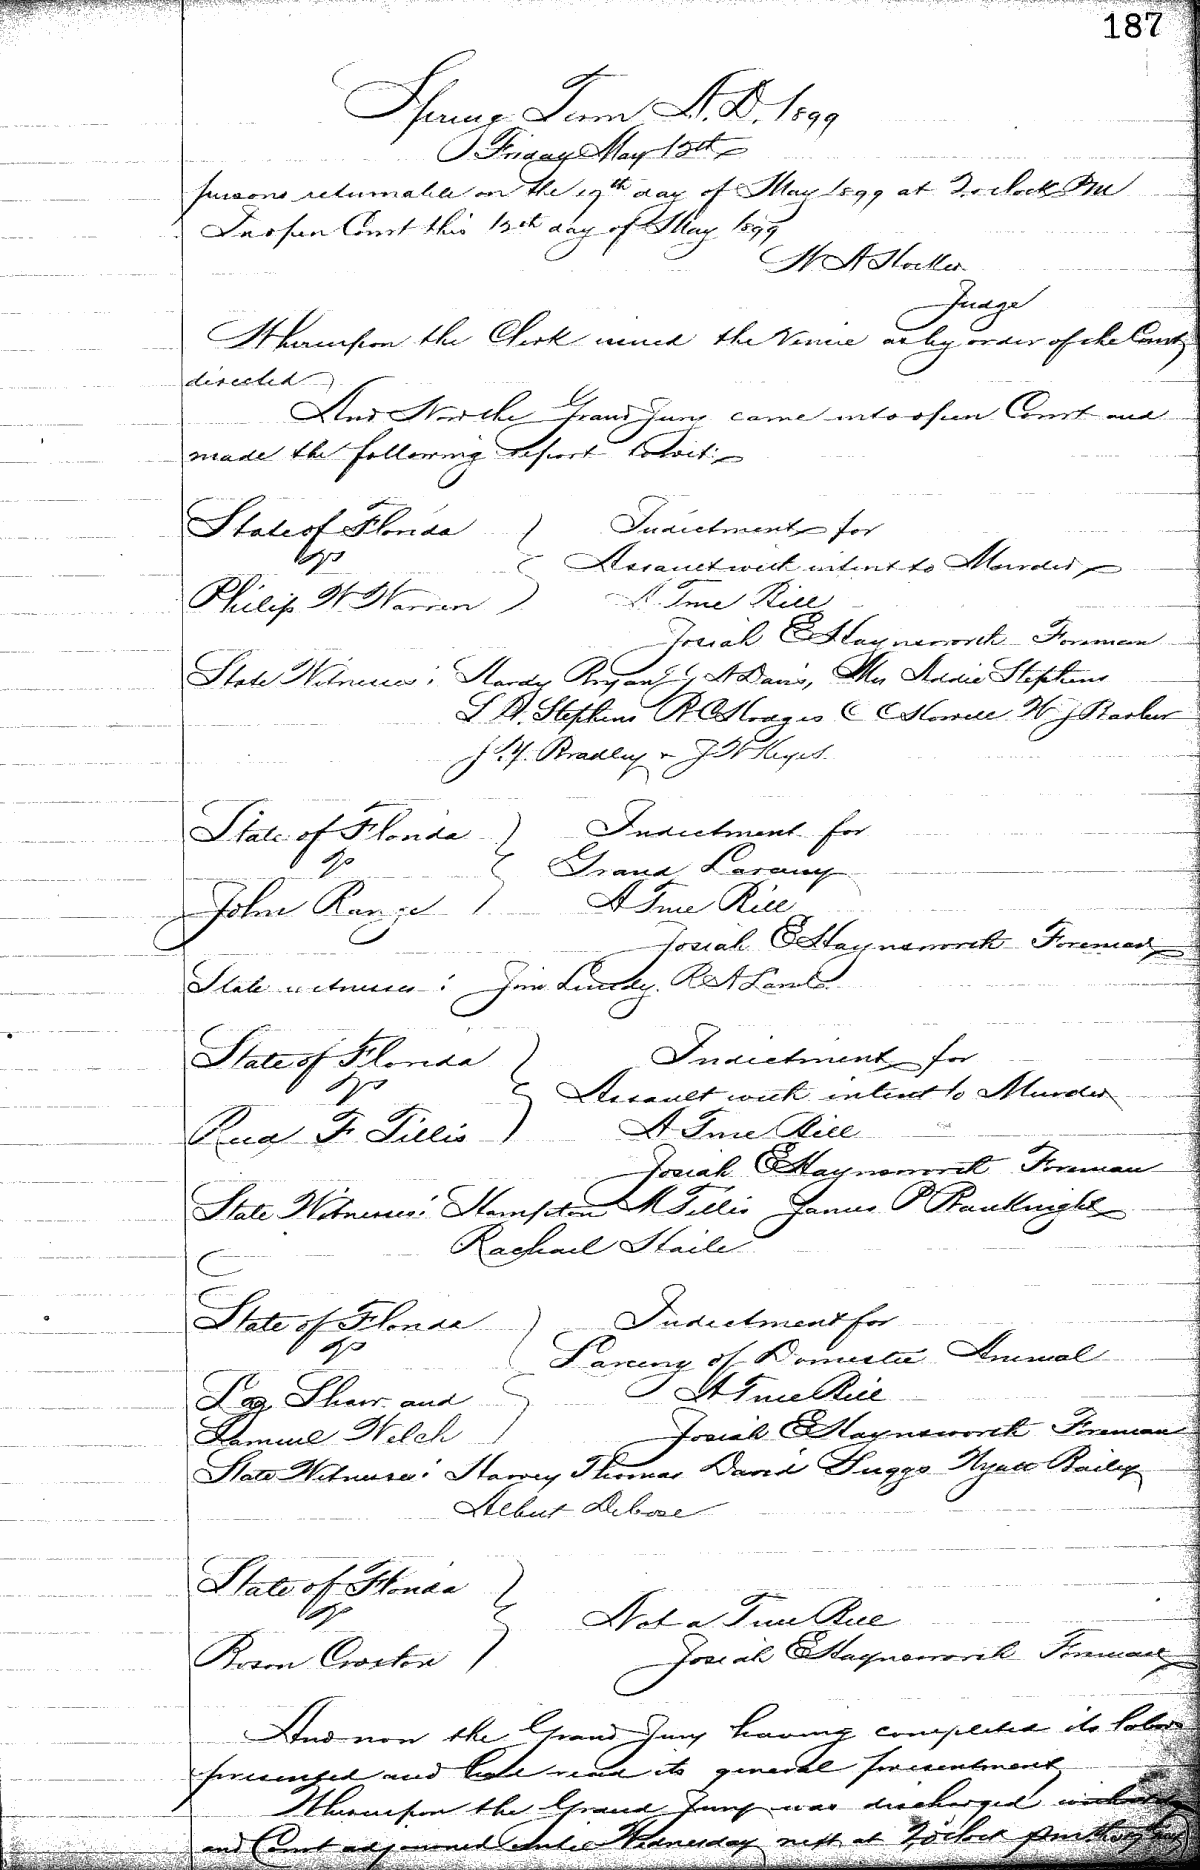 187
Spring Term A.D. 1899
Friday May 12th
persons returnable on the 17th day of May 1899 at 2 oclock PM
In open Court this 12th day of May 1899
W A Hocker
Judge
Whereupon the Clerk issued the Venire as by order of the Court
directed
And Now the Grand Jury came into open Court and
made the following report towit:
State of Florida Indictment for
vs Assault with intent to Murder
Philip W Warren A True Bill
Josiah E Haynsworth Foreman
State Witnesses: Hardy Bryan J A Davis, Mrs Addie Stephens
S W. Stephens R C Hodges C C Howell W J Barber
J. Y. Bradley & J W Keyes
State of Florida Indictment for
vs Grand Larceny
John Range A True Bill
Josiah E Haynsworth Foreman
State witnesses: Jim R A Lamb
State of Florida Indictment for
vs Assault with intent to Murder
F Tillis A True Bill
Josiah E Haynsworth Foreman
State Witnesses: Hampton M Tillis James P BrauKnight
Rachael Haile
State of Florida Indictment for
vs Larceny of Domestic Animal
Shaw and A True Bill
Samuel Welch Josiah E Haynsworth Foreman
State Witnesses: Harvey Thomas David Suggs Wyatt Bailey
Albert Debose
State of Florida
vs Not a True Bill
Croxton Josiah E Haynsworth Foreman
And now the Grand Jury having completed its labors
presented and had read its general presentment
Whereupon the Grand Jury was discharged
and Court adjourned until Wednesday next at 2 oclock